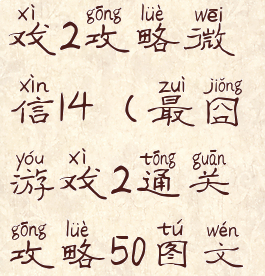 xì gōng lüè wēi
戏2攻略微
xìn zuì jiǒng
信14（最囧
yóu xì tōng guān
游戏2通关
gōng lüè tú wén
攻略50图文